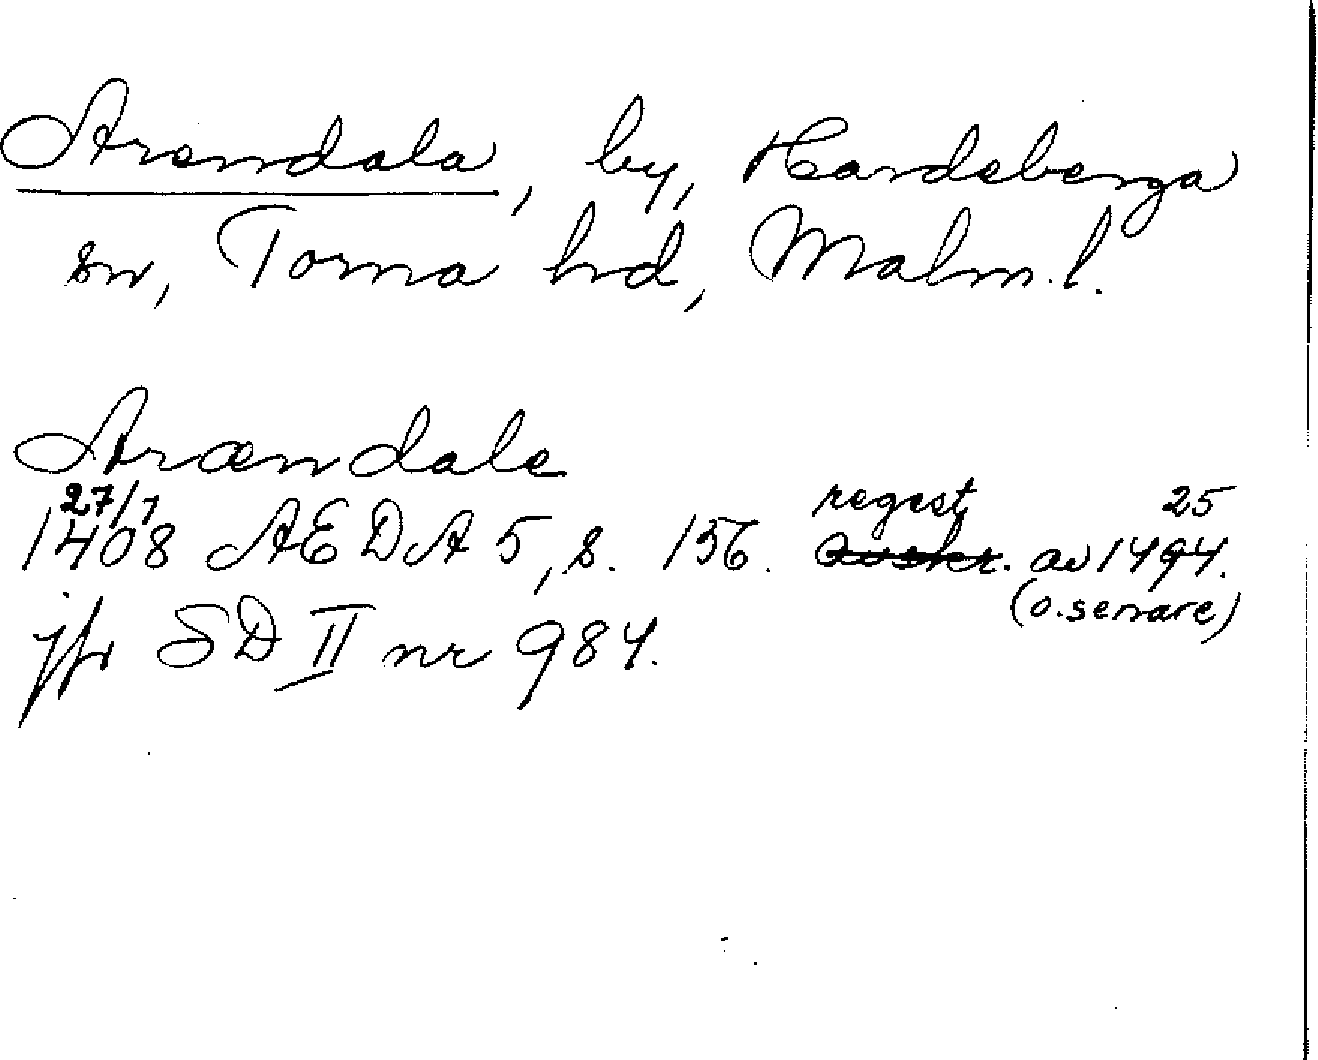 Arendala, by, Hardeberga
sn, Torna hd, Malm. l.
Arændale
27/7 regest 25
1408 AEDA 5, s. 156. Avskr. av 1494.
(o. senare)
jfr SD II nr 984.